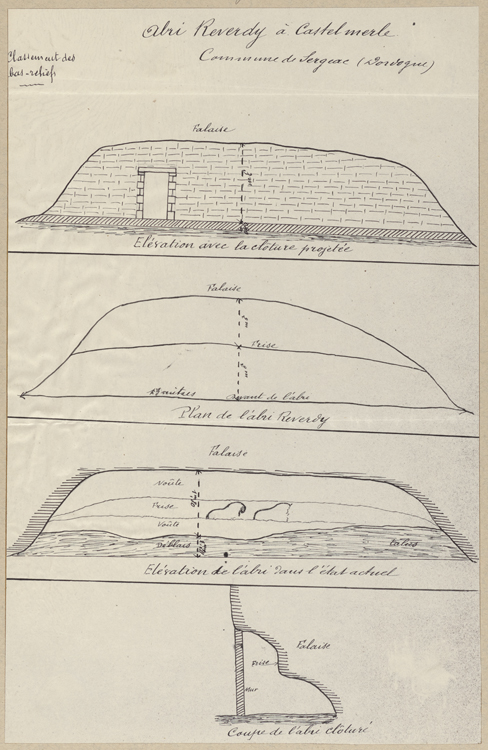 Abri Reverdy à Castelmerle
Commune de Sergeac (Dordogne)
Classement des
bas-reliefs
Falaise
Elévation avec la clôture projetée
Falaise
Frise
mètres avant de l'abri
Plan de l'abri Reverdy
Falaise
Voûte
Frise
Voûte
Déblais
Talus
Elévation de l'abri dans l'état actuel
Falaise
Frise
Mur
Coupe de l'abri clôturé